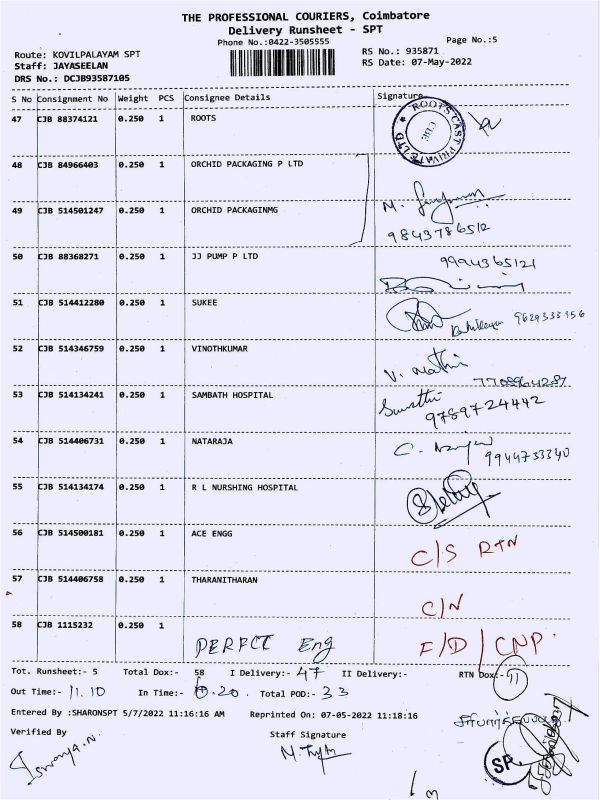 THE PROFESSIONAL COURIERS, Coimbatore
Delivery Runsheet - SPT
Phone No.:0422-3505555 Page No.:5
Route: KOVILPALAYAM SPT RS No.: 935871
Staff: JAYASEELAN RS Date: 07-May-2022
DRS No.: DCJB93587105
S No Consignment No Weight PCS Consignee Details Signature
47 CJB 88374121 0.250 1 ROOTS
ROOTS CAST PRIVATE LTD CBE
48 CJB 84966403 0.250 1 ORCHID PACKAGING P LTD
49 CJB 514501247 0.250 1 ORCHID PACKAGINMG M.
9843786512
50 CJB 88368271 0.250 1 JJ PUMP P LTD 9994365121
51 CJB 514412280 0.250 1 SUKEE
52 CJB 514346759 0.250 1 VINOTHKUMAR V.
53 CJB 514134241 0.250 1 SAMBATH HOSPITAL
9789724442
54 CJB 514406731 0.250 1 NATARAJA C.
9944733340
55 CJB 514134174 0.250 1 R L NURSHING HOSPITAL
56 CJB 514500181 0.250 1 ACE ENGG C/S RTN
57 CJB 514406758 0.250 1 THARANITHARAN
C/N
58 CJB 1115232 0.250 1
PERFCT Eng F/D / CNP.
Tot. Runsheet:- 5 Total Dox:- 58 I Delivery:- 47 II Delivery:- RTN Dox:- 11
Out Time:- 11.10 In Time:- 6.20. Total POD:- 33
Entered By :SHARONSPT 5/7/2022 11:16:16 AM Reprinted On: 07-05-2022 11:18:16
Verified By Staff Signature
Iswarya.N. M.
SP